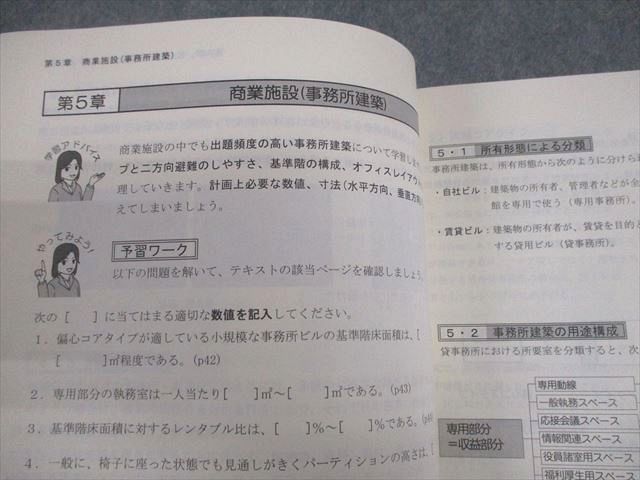 第5章 商業施設(事務所建築)
第5章
商業施設(事務所建築)
学習アドバイス
商業施設の中でも出題頻度の高い事務所建築について学習しま
プと二方向避難のしやすさ、基準階の構成、オフィスレイアウ
理していきます。計画上必要な数値、寸法(水平方向、垂直方向
えてしまいましょう。
やってみよう!
予習ワーク
以下の問題を解いて、テキストの該当ページを確認しましょう
次の[ ]に当てはまる適切な数値を記入してください。
1．偏心コアタイプが適している小規模な事務所ビルの基準階床面積は、[
[ ]㎡程度である。(p42)
2．専用部分の執務室は一人当たり[ ]㎡～[ ]㎡である。(p43)
3．基準階床面積に対するレンタブル比は、[ ]％～[ ]％である。
4．一般に、椅子に座った状態でも見通しがきくパーティションの高さは、[
5・1 所有形態による分類
事務所建築は、所有形態から次のように分けら
・自社ビル：建築物の所有者、管理者などが全
館を専用で使う（専用事務所）。
・賃貸ビル：建築物の所有者が、賃貸を目的と
する貸用ビル（貸事務所）。
5・2 事務所建築の用途構成
貸事務所における所要室を分類すると、次
専用部分
＝収益部分
専用動線
一般執務スペース
応接会議スペース
情報関連スペース
役員諸室用スペース
福利厚生用スペース